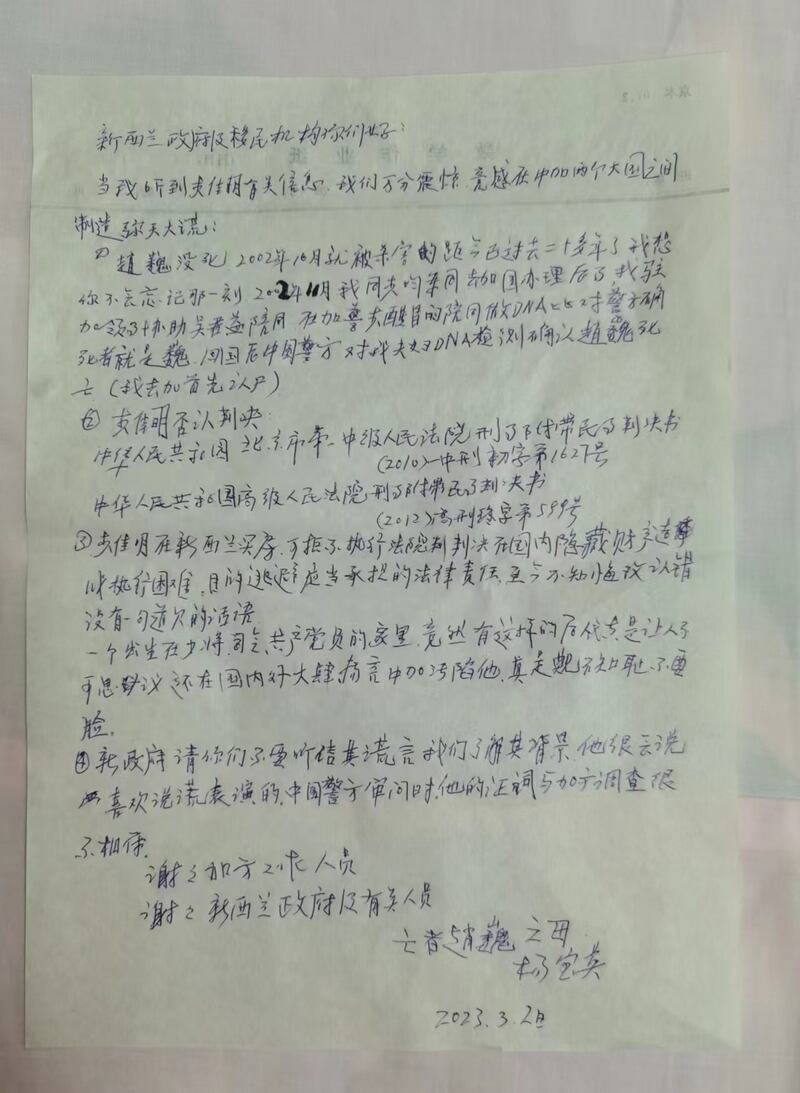 新西兰政府及移民机构你们好：
当我听到麦佳明有关信息，我们万分震惊，竟感在中加两个大国之间
制造弥天大谎：
① 赵巍没死 2002年10月就被杀害的距今已过去二十多年了我想
你不会忘记那一刻 2002年11月我同夫均亲同去加国办理后事，我驻
加领事协助吴 陪同 在加警 目的陪同做DNA比对警方确
死者就是巍，回国后中国警方对我夫妇DNA检测确认赵巍死
亡（我去加首先认尸）
② 麦佳明否认判决：
中华人民共和国北京市第一中级人民法院刑事附带民事判决书
(2010)一中刑初字第1627号
中华人民共和国高级人民法院刑事附带民事判决书
(2012)高刑终字第599号
③ 麦佳明在新西兰买房，可拒不执行法院刑判决在国内隐藏财产造
成执行困难，目的逃避应当承担的法律责任，至今不知悔改认错
没有一句道欠的话语
一个出生在少将司令，共产党员的家里，竟然有这样的后代真是让人不
可思议还在国内外大肆 言中加污陷他，真是无知耻不要
脸。
④ 新政府请你们不要听信其谎言我们了解其背景，他很会说
喜欢说谎表演的，中国警方审问时，他的证词与加方调查很
不相符。
谢谢加方工作人员
谢谢新西兰政府及有关人员
亡者赵巍之母
杨宝英
2023.3.2日